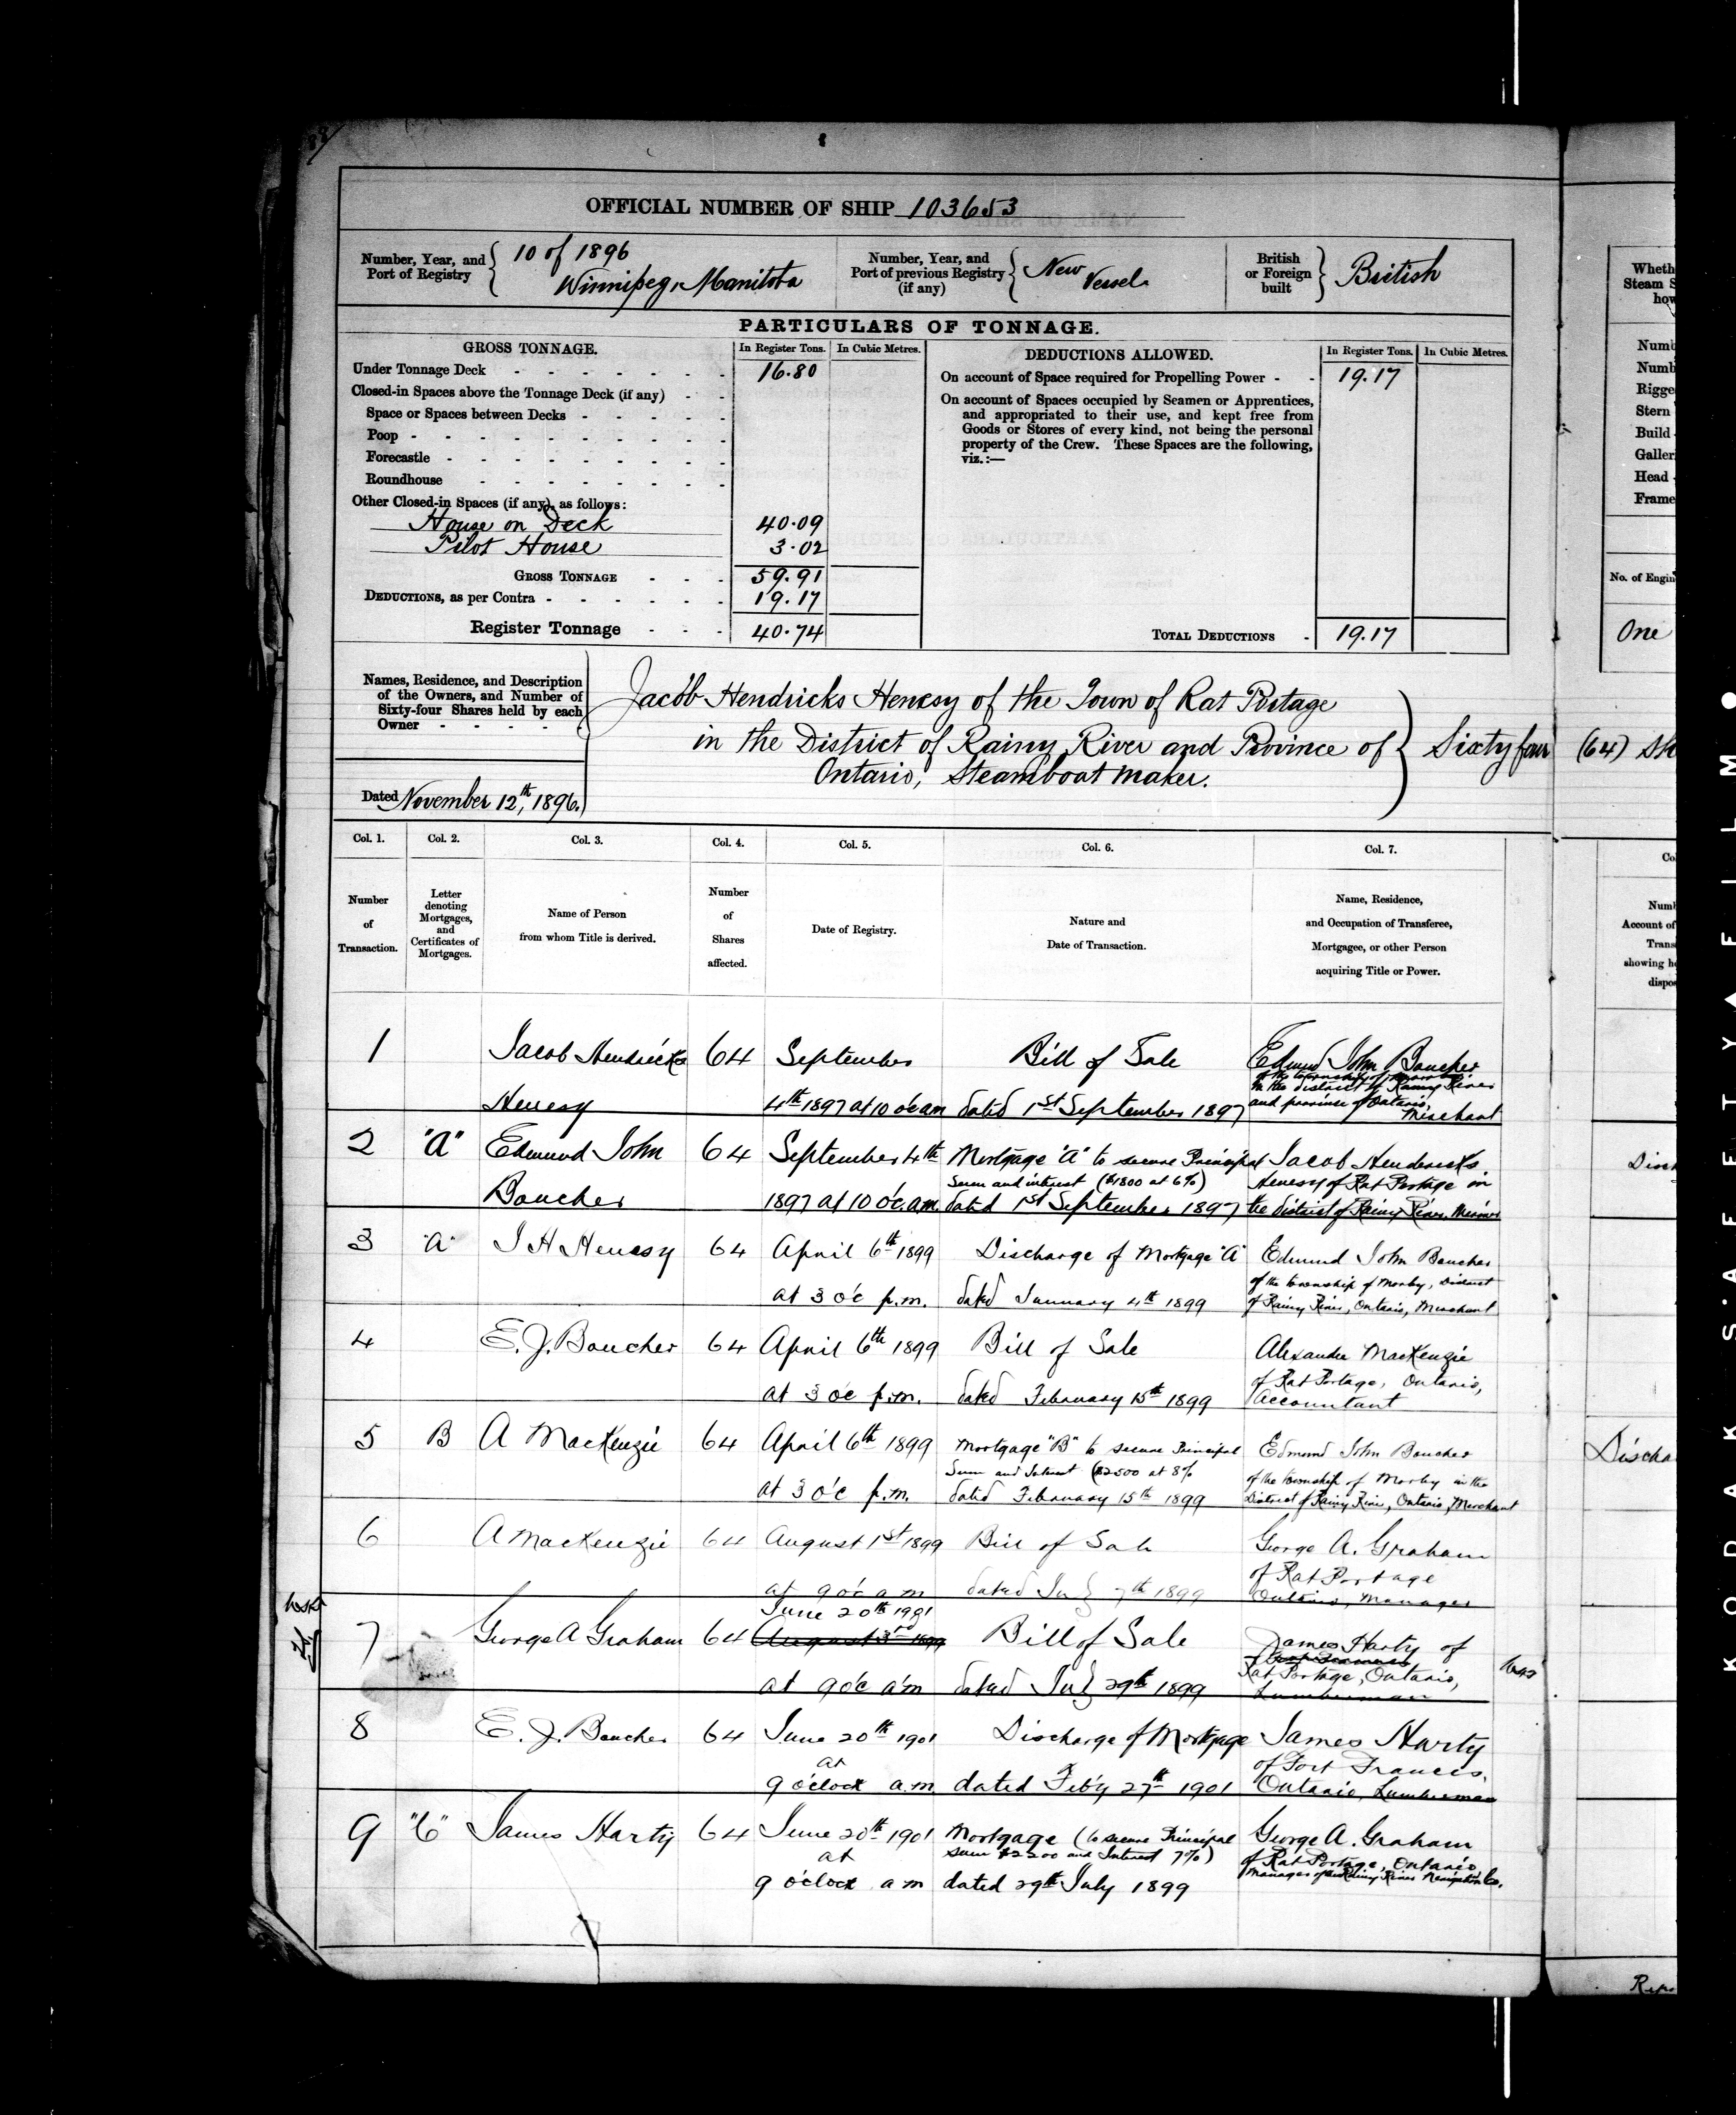 OFFICIAL NUMBER OF SHIP 103653
Number, Year, and Port of Registry
10 of 1896
Winnipeg, Manitoba
Number, Year, and Port of previous Registry (if any)
New Vessel
British or Foreign built
British
PARTICULARS OF TONNAGE.
GROSS TONNAGE. In Register Tons. In Cubic Metres.
Under Tonnage Deck 16.80
Closed-in Spaces above the Tonnage Deck (if any)
Space or Spaces between Decks
Poop
Forecastle
Roundhouse
Other Closed-in Spaces (if any), as follows:
House on Deck 40.09
Pilot House 3.02
GROSS TONNAGE 59.91
DEDUCTIONS, as per Contra 19.17
Register Tonnage 40.74
DEDUCTIONS ALLOWED. In Register Tons. In Cubic Metres.
On account of Space required for Propelling Power 19.17
On account of Spaces occupied by Seamen or Apprentices,
and appropriated to their use, and kept free from
Goods or Stores of every kind, not being the personal
property of the Crew. These Spaces are the following,
viz.:—
TOTAL DEDUCTIONS 19.17
Names, Residence, and Description
of the Owners, and Number of
Sixty-four Shares held by each
Owner
Dated November 12th, 1896.
Jacob Hendricks Henesy of the Town of Rat Portage
in the District of Rainy River and Province of
Ontario, Steamboat maker.
Sixty four (64) Sh
Col. 1. Col. 2. Col. 3. Col. 4. Col. 5. Col. 6. Col. 7.
Number of Transaction.
Letter denoting Mortgages, and Certificates of Mortgages.
Name of Person from whom Title is derived.
Number of Shares affected.
Date of Registry.
Nature and Date of Transaction.
Name, Residence, and Occupation of Transferee, Mortgagee, or other Person acquiring Title or Power.
1 Jacob Hendricks 64 September Bill of Sale Edmund John Boucher
in the district of Rainy River
Henesy 4th 1897 at 10 o'c am dated 1st September 1897 and province of Ontario,
Merchant
2 "A" Edmund John 64 September 4th Mortgage "A" to secure Principal Jacob Hendericks
Sum and interest ($1800 at 6%) Henesy of Rat Portage in
Boucher 1897 at 10 o'c. a.m. dated 1st September 1897 the district of Rainy River
3 "A" J H Henesy 64 April 6th 1899 Discharge of Mortgage "A" Edmund John Boucher
of the township of Morley, District
at 3 o'c p.m. dated January 4th 1899 of Rainy River, Ontario, Merchant
4 E. J. Boucher 64 April 6th 1899 Bill of Sale Alexander MacKenzie
of Rat Portage, Ontario,
at 3 o'c p.m. dated February 15th 1899 Accountant
5 B A MacKenzie 64 April 6th 1899 Mortgage "B" to secure Principal Edmond John Boucher
Sum and Interest ($2500 at 8% of the township of Morley in the
at 3 o'c p.m. dated February 15th 1899 District of Rainy River, Ontario, Merchant
6 A MacKenzie 64 August 1st 1899 Bill of Sale George A. Graham
of Rat Portage
at 9 o'c a m dated July 7th 1899 Ontario, Manager
June 20th 1901
7 George A Graham 64 August 3rd 1899 Bill of Sale James Harty of
Rat Portage, Ontario,
at 9 o'c a'm dated July 29th 1899 Lumberman
8 E. J. Boucher 64 June 20th 1901 Discharge of Mortgage James Harty
at of Fort Frances,
9 o'clock a.m. dated Feb'y 27th 1901 Ontario, Lumberman
9 "C" James Harty 64 June 20th 1901 Mortgage (to secure Principal George A. Graham
at sum $2200 and Interest 7%) of Rat Portage, Ontario,
9 o'clock a m dated 29th July 1899 Manager of the Rainy River Navigation Co.
Wheth
Steam S
how
Numb
Numb
Rigge
Stern
Build
Galler
Head
Frame
No. of Engin
One
Co
Numb
Account of
Trans
showing ho
dispo
Disch
Discha
KODAK S'AFETY FILM